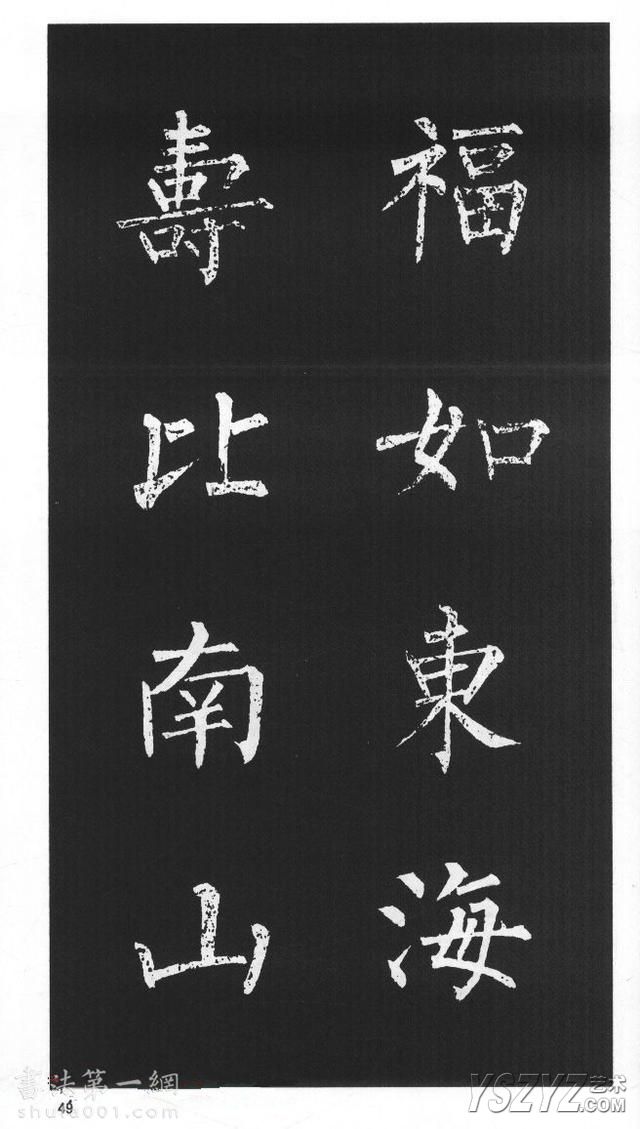 福如東海
壽比南山
書法第一網
shufa001.com
49
YSZYZ艺术
.COM